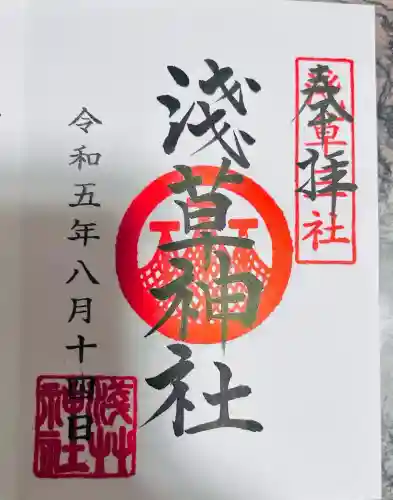 奉拝
淺草神社
令和五年八月十四日
淺草
神社